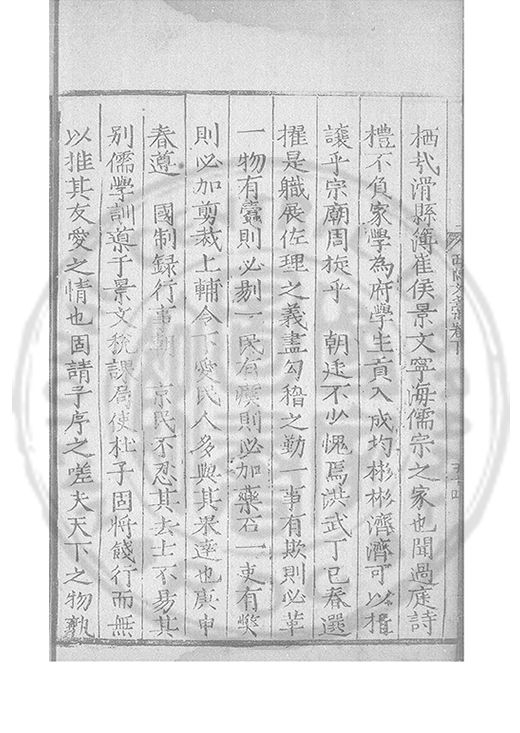 栖㢤滑縣簿崔侯景文寧海儒宗之家也聞過庭詩
禮不負家學為府學生貢入成均彬彬濟濟可以揖
讓乎宗廟周旋乎 朝廷不少愧焉洪武丁巳春選
擢是職展佐理之義盡勾稽之勤一事有欺則必革
一物有蠹則必剔一民有瘼則必加藥石一吏有獘
則必加剪裁上輔令下愛民人多與其果達也庚申
春遵 國制録行事朝 京民不忍其去士不易其
別儒學訓導于景文稅課局使杜子固將餞行而無
以推其友愛之情也固請予序之嗟夫天下之物孰
文章卷下